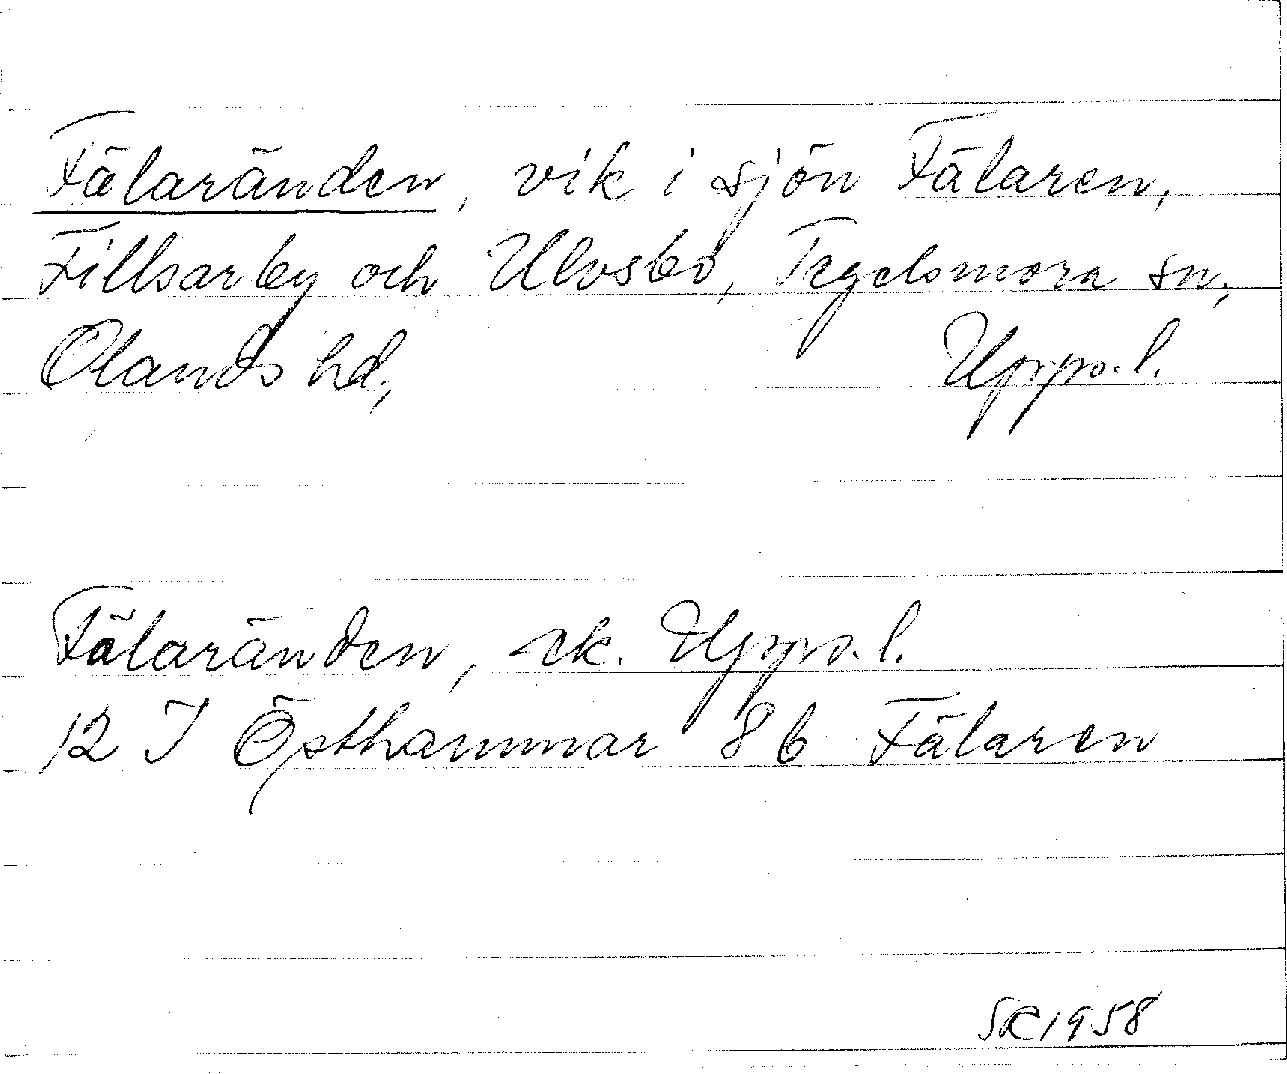 Fälaränden, vik i sjön Fälaren,
Fillsarby och Ulvsbo, Tegelsmora sn,
Olands hd, Upps. l.
Fälaränden, ek. Upps. l.
12 I Östhammar 86 Fälaren
SK 1958